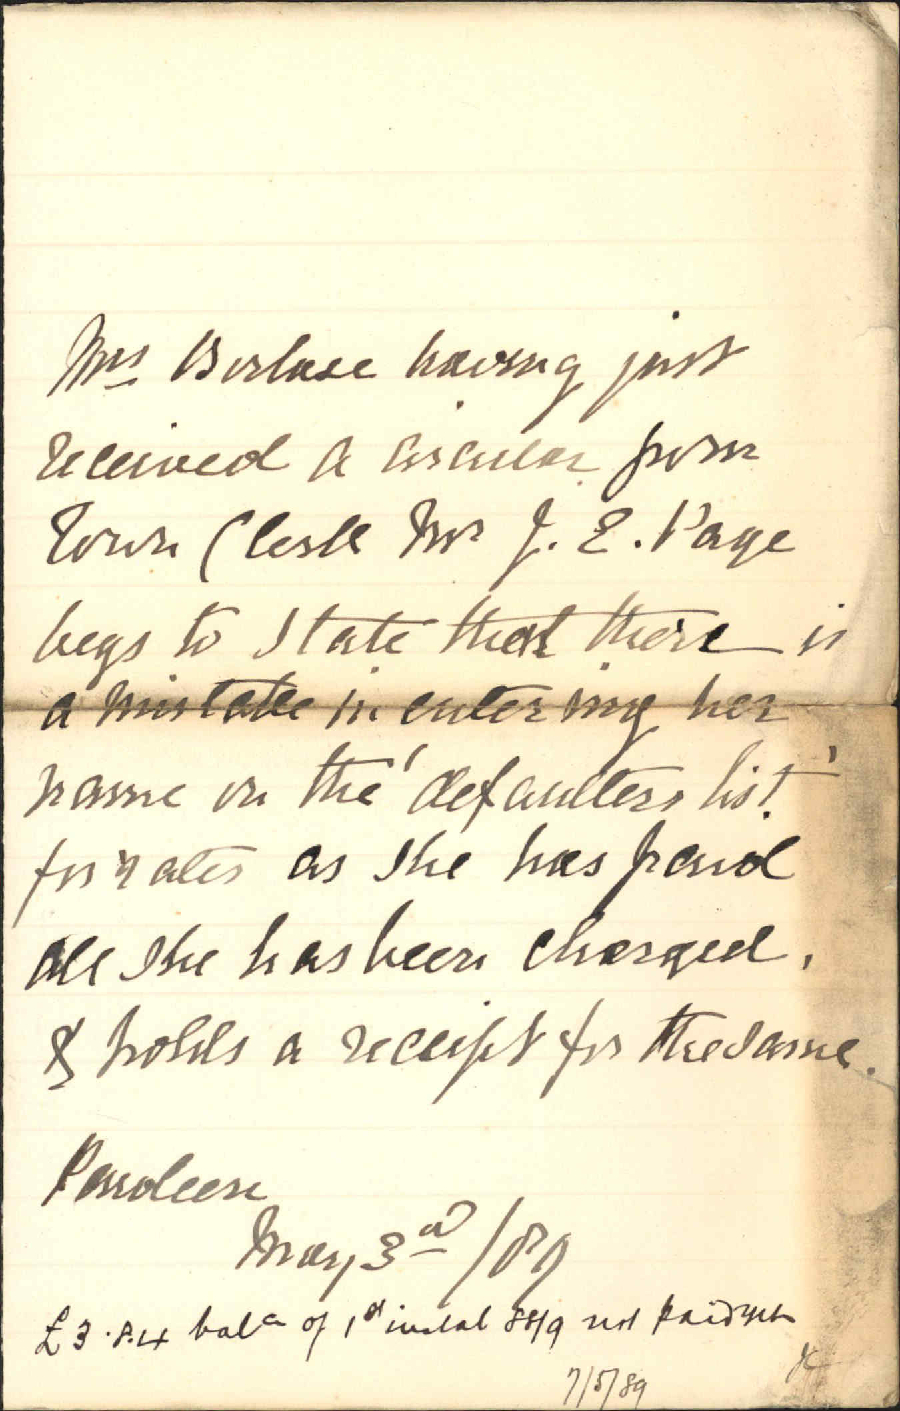 Mrs Borlase having just
received a circular from
Town Clerk Mr J. E. Page
begs to state that there is
a mistake in entering her
name on the 'defaulters list'
for rates as she has paid
all she has been charged,
& holds a receipt for the same.
May 3rd /89
£3.8.4 balce of 1st instal 88/9 not paid yet
7/5/89